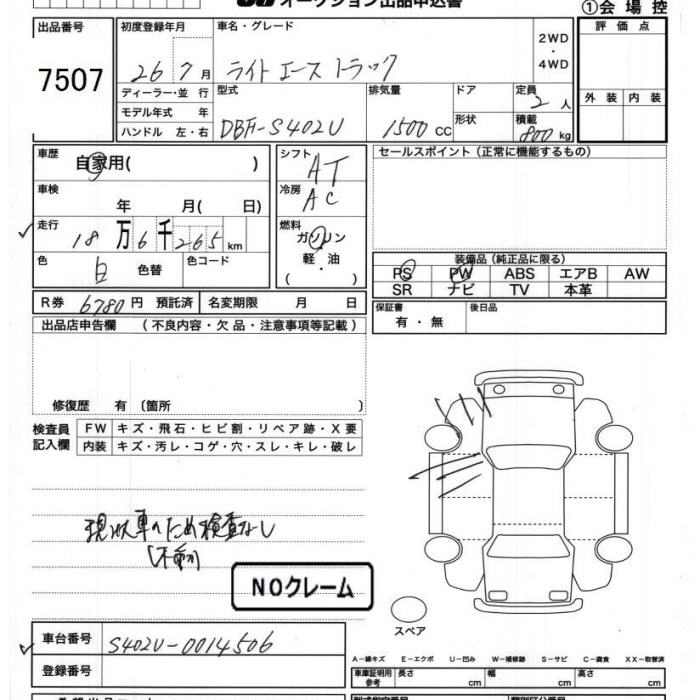 オークション出品申込書
①会場控
出品番号
7507
初度登録年月
26 7月
車名・グレード
ライトエーストラック
2WD
・
4WD
評価点
外装 内装
ディーラー・並行
モデル年式 年
ハンドル 左・右
型式
DBF-S402U
排気量
1500 CC
ドア
形状
定員
2人
積載
800kg
車歴
自家用( )
シフト
AT
セールスポイント(正常に機能するもの)
車検
年 月( 日)
冷房
AC
走行
18万6千265km
燃料
ガソリン
軽・油
( )
色
白 色替
色コード
装備品(純正品に限る)
PS PW ABS エアB AW
SR ナビ TV 本革
R券 6780円 預託済 名変期限 月 日
保証書
有・無
後日品
出品店申告欄 (不良内容・欠品・注意事項等記載)
修復歴 有 〔箇所 〕
検査員
記入欄
FW キズ・飛石・ヒビ割・リペア跡・X要
内装 キズ・汚レ・コゲ・穴・スレ・キレ・破レ
現状車のため検査なし
(不動)
NOクレーム
スペア
車台番号 S402U-0014506
登録番号
A－線キズ E－エクボ U－凹み W－補修跡 S－サビ C－腐食 XX－取替済
車庫証明用
参考
長さ cm 幅 cm 高さ cm